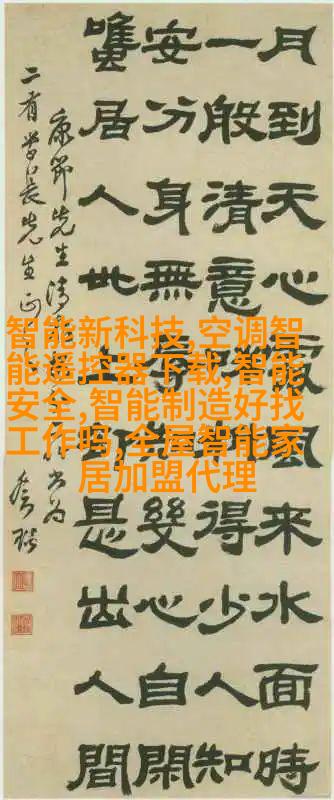 月到天心處風來水面時
一般清意味料得少人知
安分身無辱知幾心自閑
雖居人世上卻是出人間
康節先生清
書為
二有學長先生正
智能新科技,空调智
能遥控器下载,智能
安全,智能制造好找
工作吗,全屋智能家
居加盟代理